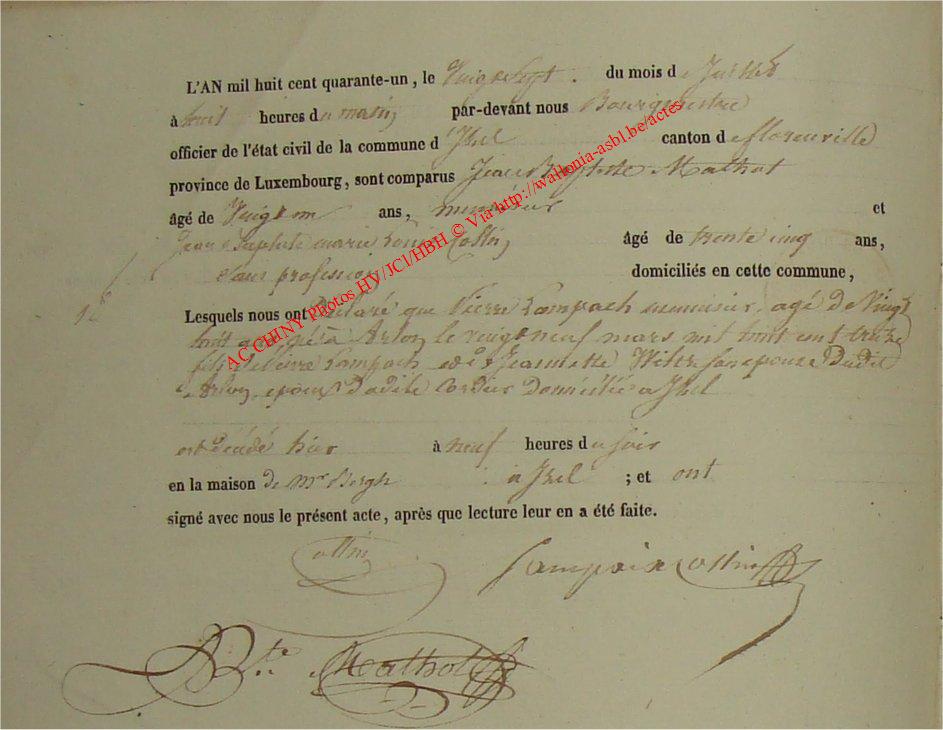 L'AN mil huit cent quarante-un, le Vingt Sept . du mois de Juillet
à huit heures du matin par-devant nous Bourguemestre
officier de l'état civil de la commune d'Izel canton de florenville
province de Luxembourg, sont comparus Jean Baptiste Mathot
âgé de Vingt ans, menuisier et
Jean Baptiste marie Louis Collin âgé de trente cinq ans,
Sans profession domiciliés en cette commune,
Lesquels nous ont Déclaré que Pierre Lampach menuisier, agé de Vingt
huit ans, né à Arlon le vingt neuf mars mil huit cent treize
fils de Pierre Lampach et de Jeannette Wiltz son epouse Dudit
Arlon, epoux D'odile Cordier Domiciliée a Izel
est décédé hier à neuf heures du soir
en la maison de Mr Bergh à Izel ; et ont
signé avec nous le présent acte, après que lecture leur en a été faite.
Collin
Bte Mathot
AC CHINY Photos HV/JCl/HBH © Via http://wallonia-asbl.be/actes